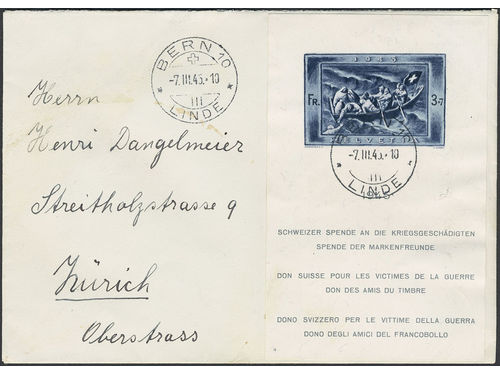 BERN 10
-7.III.45.-10
III
LINDE
Herrn
Henri Dangelmeier
Streitholzstrasse 9
Zürich
Oberstrass
1945
FR. 3.-
HELVETIA
-7.III.45.-10
III
LINDE
1945
SCHWEIZER SPENDE AN DIE KRIEGSGESCHÄDIGTEN
SPENDE DER MARKENFREUNDE
DON SUISSE POUR LES VICTIMES DE LA GUERRE
DON DES AMIS DU TIMBRE
DONO SVIZZERO PER LE VITTIME DELLA GUERRA
DONO DEGLI AMICI DEL FRANCOBOLLO